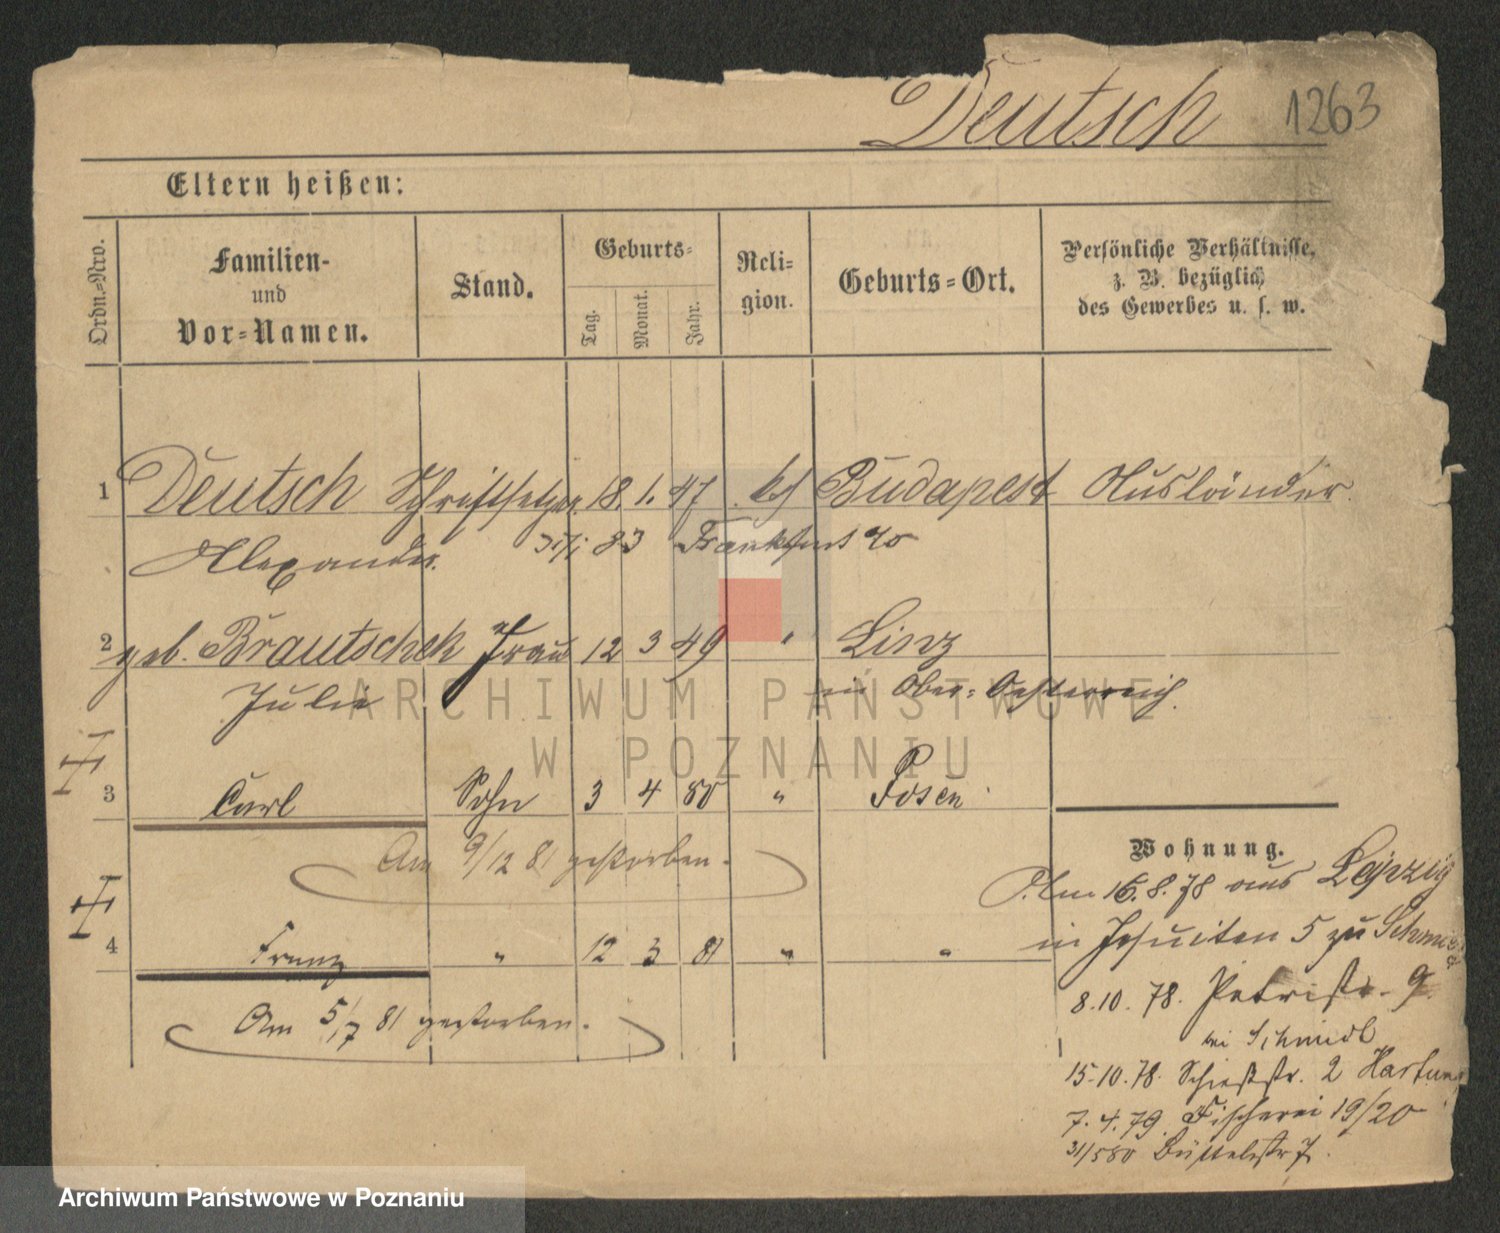 Deutsch 1263
Eltern heißen:
Ordn.-Nro.
Familien-
und
Vor-Namen.
Stand.
Geburts-
Tag.
Monat.
Jahr.
Reli-
gion.
Geburts-Ort.
Persönliche Verhältnisse,
z. B. bezüglich
des Gewerbes u. s. w.
1 Deutsch Schriftsetzer 18. 1. 47 Budapest Ausländer
Alexander. 83 Frankfurt
2 geb. Brautschek Frau 12 3 49 " Linz
Julie in Ober-Oesterreich.
3 Carl Sohn 3 4 80 " Posen
Am 9/12 81 gestorben.
4 Franz " 12 3 81 " "
Am 5/7 81 gestorben.
Wohnung.
Am 16.8.78 aus Leipzig
in Jesuiten 5 zu Schmidt
8.10.78. Petristr. 9.
bei Schmidt
15.10.78. Schießstr. 2 Hartung
7.4.79. Fischerei 19/20
31/5 80 Büttelstr 7.
ARCHIWUM PAŃSTWOWE
W POZNANIU
Archiwum Państwowe w Poznaniu